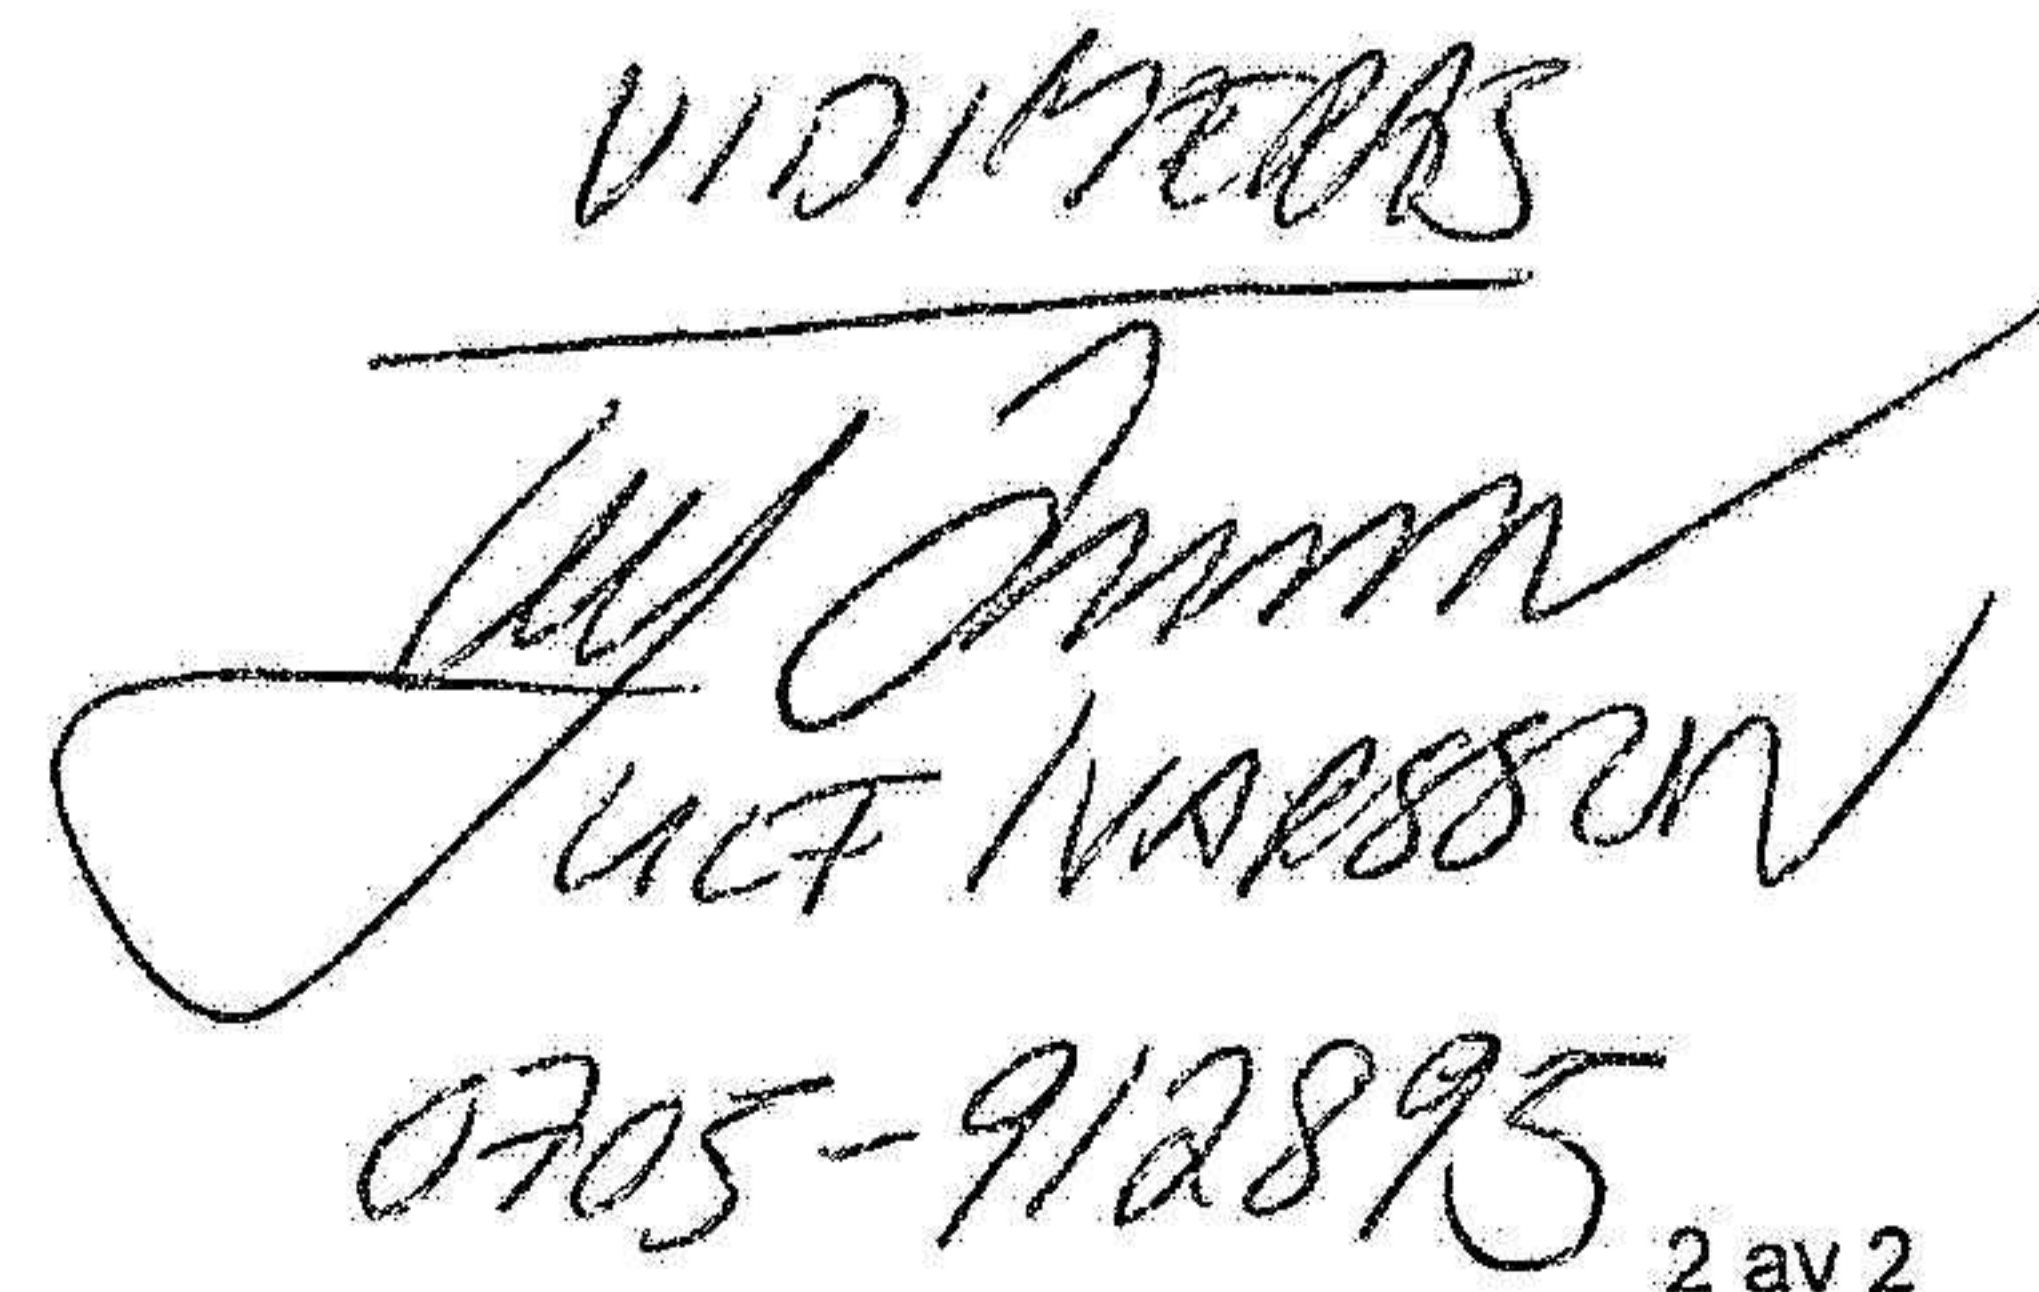 VIDIMERAS
ULF IVARSSON
0705-912895
2 av 2